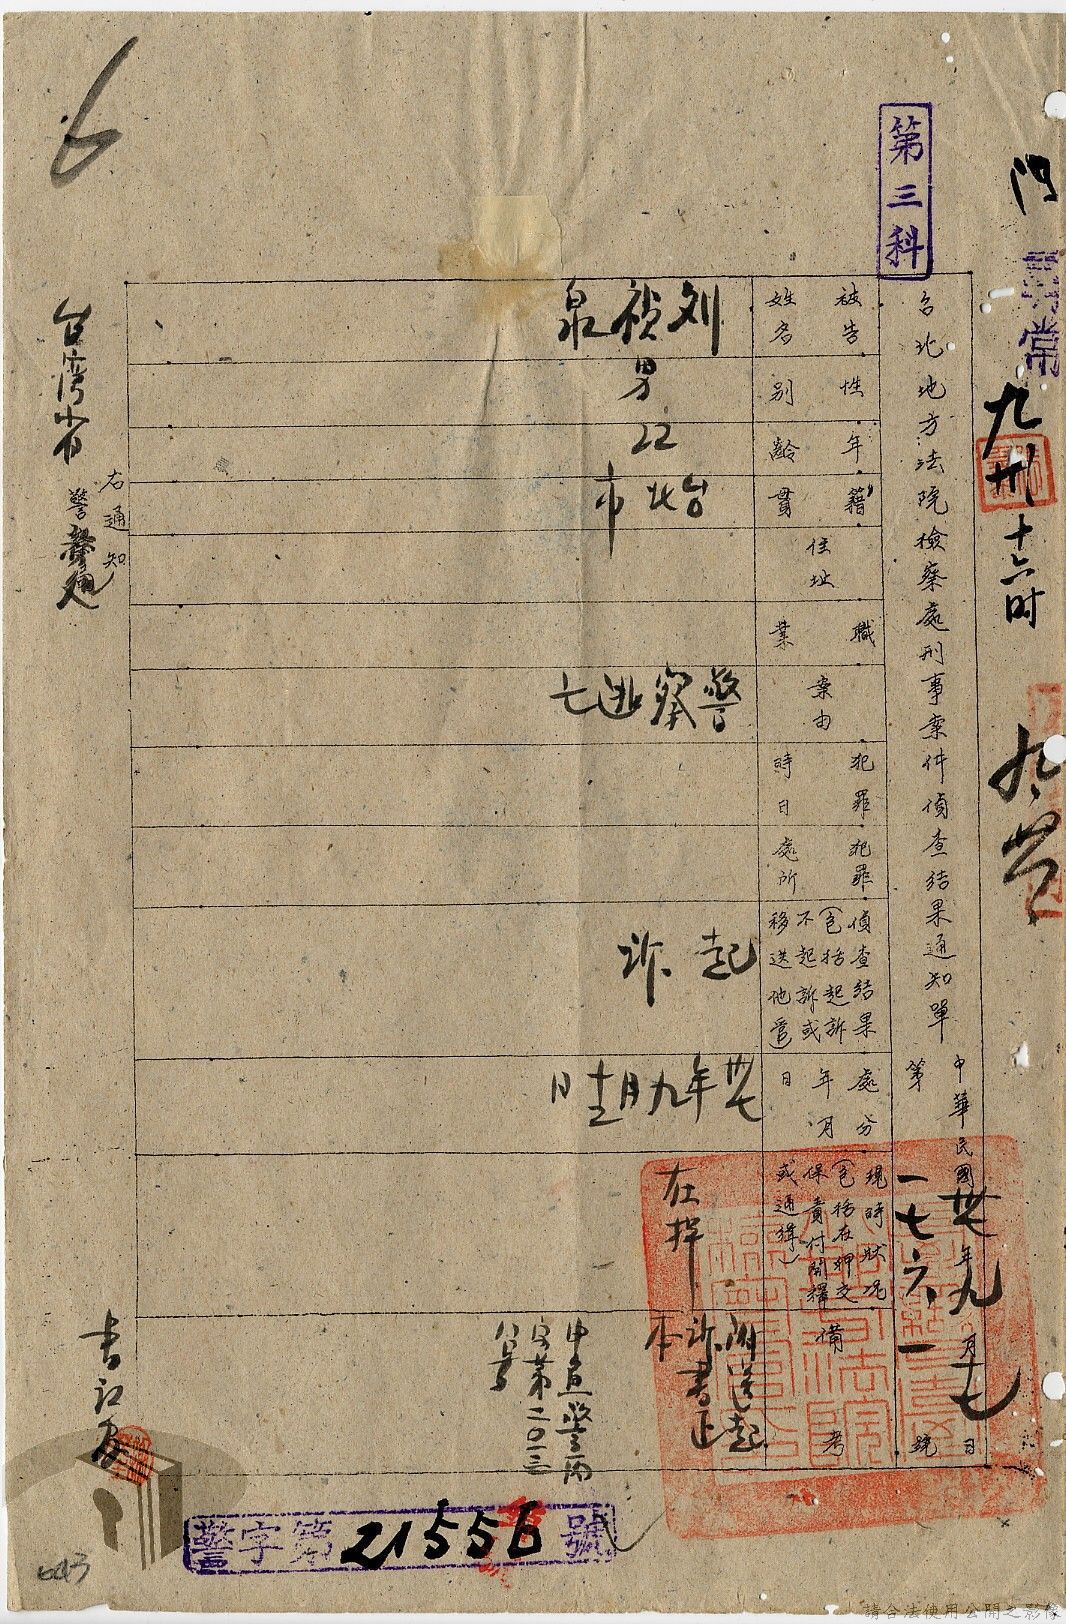 第三科
尋常
九 卅 十六时
台北地方法院檢察處刑事案件偵查結果通知單
中華民國卅七年九月十七日
第一七六一號
被告姓名
刘禎泉
性別
男
年齡
22
籍貫
台北市
住址
職業
案由
警察逃亡
犯罪時日
犯罪處所
偵查結果(包括起訴不起訴或移送他管)
起訴
處分年月日
卅七年九月十五日
現時狀況(包括在押交保責付開釋或通緝)
在押
備考
附送起訴書正本
右通知
台湾省警務处
書记官
警字第21556號
643
請合法使用公開之影像